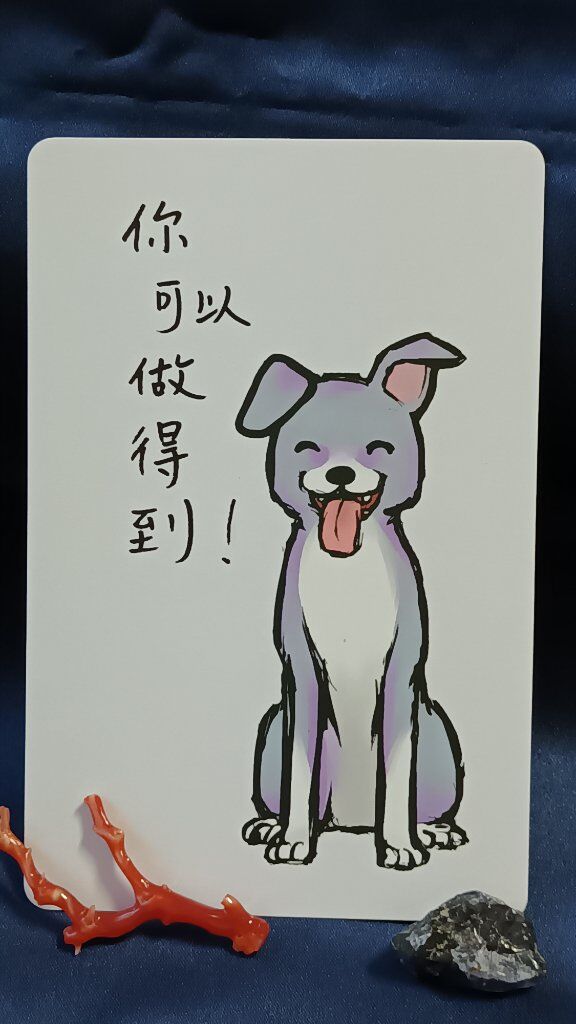 你
可以
做
得
到！